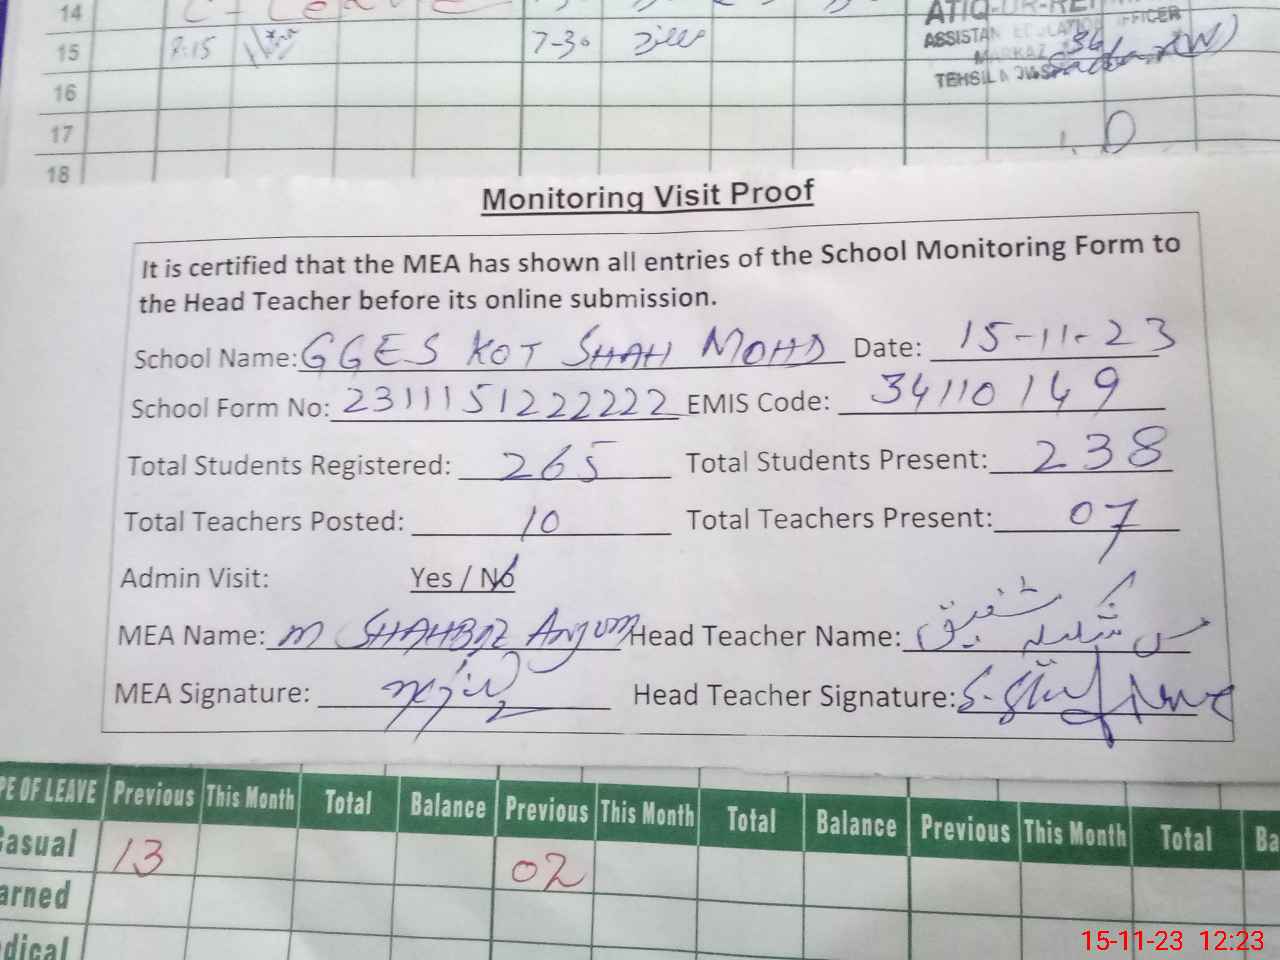 14
15 7-30
ASSISTAN EDUCATION OFFICER
MARKAZ
TEHSIL &
16
17
18
Monitoring Visit Proof
It is certified that the MEA has shown all entries of the School Monitoring Form to
the Head Teacher before its online submission.
School Name: GGES KOT SHAH MOHD Date: 15-11-23
School Form No: 2311151222222 EMIS Code: 34110149
Total Students Registered: 265 Total Students Present: 238
Total Teachers Posted: 10 Total Teachers Present: 07
Admin Visit: Yes / No
MEA Name: M SHAHBAZ Anjum Head Teacher Name:
MEA Signature: Head Teacher Signature:
PE OF LEAVE Previous This Month Total Balance Previous This Month Total Balance Previous This Month Total Ba
Casual 13 02
arned
dical
15-11-23 12:23